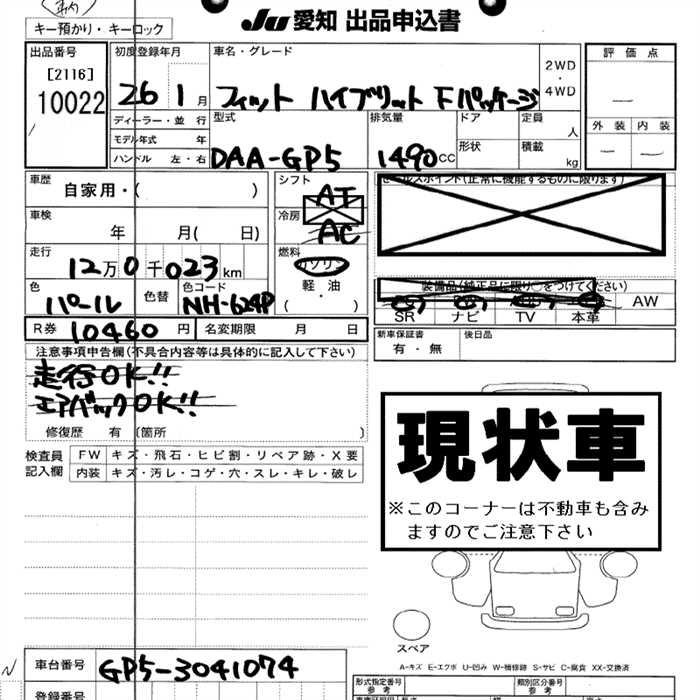 車内
JU 愛知 出品申込書
キー預かり・キーロック
出品番号 初度登録年月 車名・グレード 2WD ・ 4WD 評価点
[2116]
10022
26 1月 フィット ハイブリット Fパッケージ —
ディーラー・並行 型式 排気量 ドア 定員 人 外装 内装
モデル年式 年
ハンドル 左・右 DAA-GP5 1490cc 形状 積載 kg — —
車歴 自家用・( ) シフト AT セールスポイント(正常に機能するものに限ります)
車検 年 月( 日) 冷房 AC
走行 12万0千023km 燃料 ガソリン 軽・油
装備品(純正品に限り○をつけてください)
色 パール 色替 色コード NH-624P
SR ナビ TV 本革 AW
R券 10460円 名変期限 月 日 新車保証書 有・無 後日品
注意事項申告欄(不具合内容等は具体的に記入して下さい)
走行OK!!
エアバックOK!!
修復歴 有 (箇所 )
現状車
※このコーナーは不動車も含み
ますのでご注意下さい
検査員 FW キズ・飛石・ヒビ割・リペア跡・X要
記入欄 内装 キズ・汚レ・コゲ・穴・スレ・キレ・破レ
スペア
A-キズ E-エクボ U-凹み W-補修跡 S-サビ C-腐食 XX-交換済
N 車台番号 GP5-3041074
形式指定番号 参考 類別区分番号 参考
登録番号